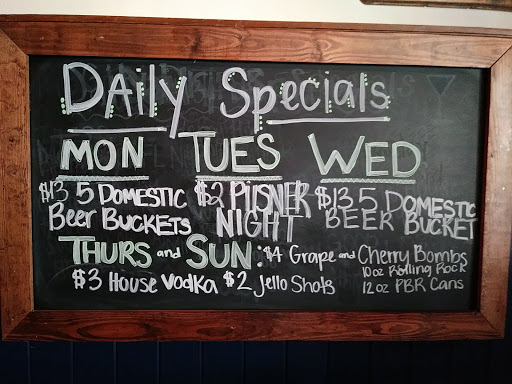 Daily Specials
MON TUES WED
$13 5 Domestic Beer Buckets
$2 PILSNER NIGHT
$13 5 DOMESTIC BEER BUCKET
THURS and SUN: $4 Grape and Cherry Bombs
$3 House Vodka $2 Jello Shots
10 oz Rolling Rock
12 oz PBR Cans